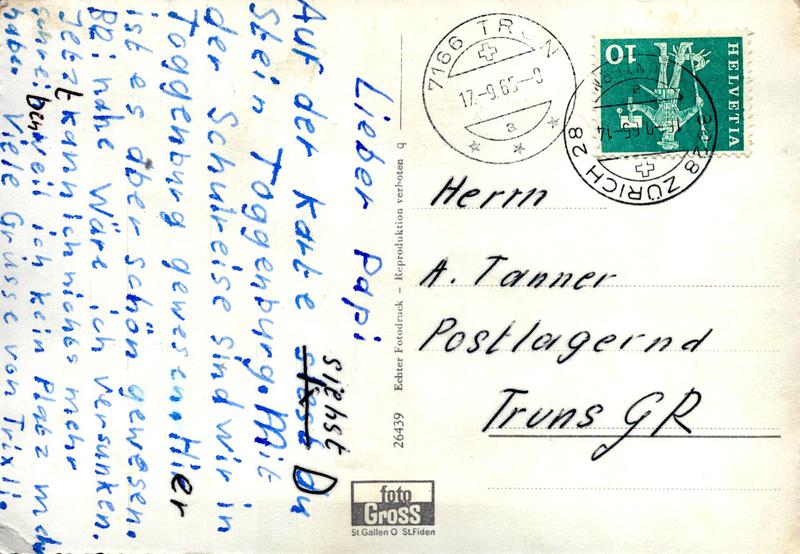 Lieber Papi
Auf der Karte siehst Du
Stein Toggenburg. Mit
der Schulreise sind wir in
Toggenburg gewesen. Hier
ist es aber schön gewesen.
Bei nahe Wäre ich versunken.
Jetzt kann ich nichts mehr
schreiben weil ich kein Platz mehr
habe. Viele Grüsse von Trixli.
Echter Fotodruck - Reproduktion verboten q
26439
foto
Gross
St.Gallen O St.Fiden
7166 TRUN
17.-9.65-9
a
HELVETIA
10
8028 ZÜRICH 28
a
Herrn
A. Tanner
Postlagernd
Truns GR